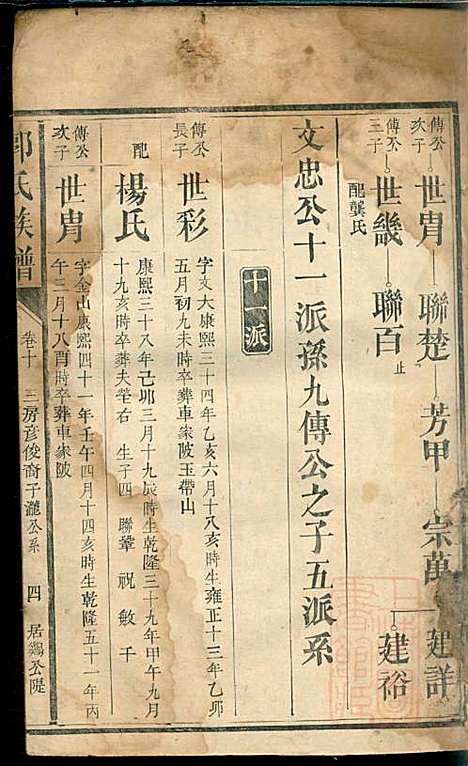 傳公次子 世冑 聯楚 芳甲 宗萬 建詳
建裕
傳公三子 世畿 聯百 止
配龔氏
文忠公十一派孫九傳公之子五派系
十一派
傳公長子 世彩 字文大康熙三十四年乙亥六月十八亥時生雍正十三年乙卯
五月初九未時卒葬車家陂玉帶山
配 楊氏 康熙三十八年己卯三月十九辰時生乾隆三十九年甲午九月
十九亥時卒葬夫塋右 生子四 聯 祝 敏 千
傳公次子 世冑 字金山康熙四十一年壬午四月十四亥時生乾隆五十一年丙
午二月十八酉時卒葬車家陂
郭氏族譜 卷十 三房彥俊裔子瀧公系 四 居鷄公隄